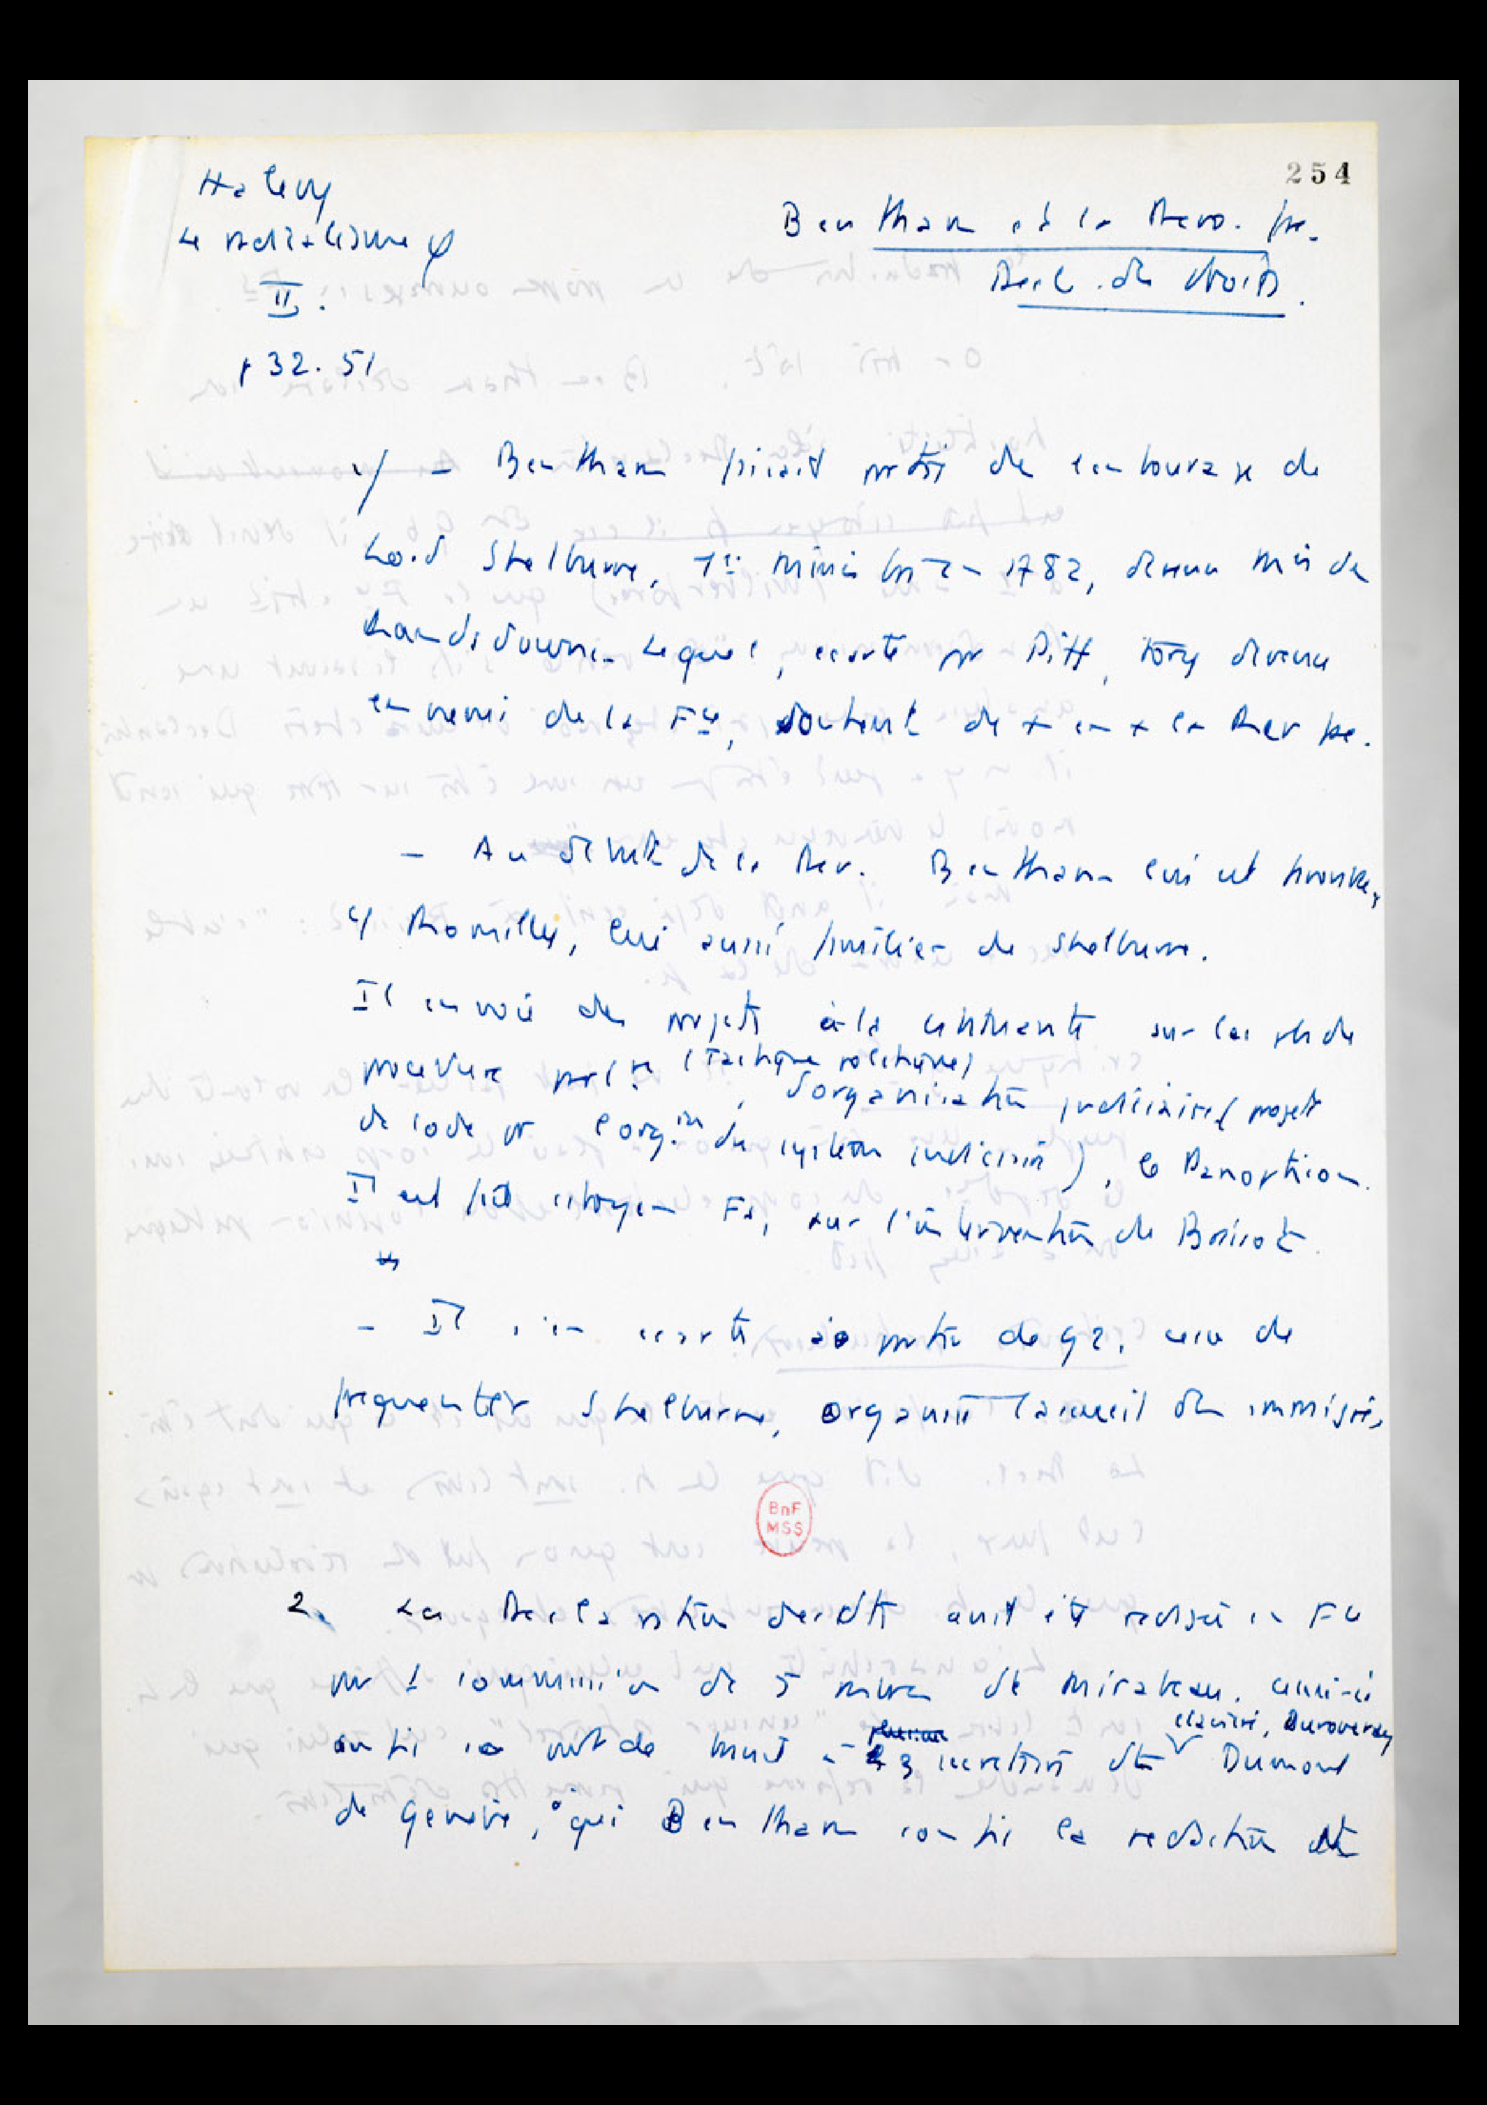 254
Halevy
Le radicalisme φ
II.
p 32. 51
Bentham et la Revo. fse.
Decl. des droits.
1/ – Bentham faisait partie de l'entourage de
Lord Shelburne, 1er Ministre en 1782, devenu Mis de
Landsdowne. Lequel, écarté par Pitt, tory devenu
ennemi de la Fce, soutient de + en + la Rev fse.
– Au début de la Rev. Bentham lui est favorable,
c/ Romilly, lui aussi familier de Shelburne.
Il envoie des projets à la constituante sur les de
procédure (Tactique politique)
, d'organisation judiciaire (projet
de code pr l'org.on du système judiciaire), le Panopticon.
Il est fait citoyen Fs, sur l'intervention de Brissot.
– Il s'en écarte à partir de 92, cesse de
frequenter Shelburne, organise l'accueil des immigrés,
2. La Declaration des dts avait été redigée en Fce
par 1 commission de 5 membres dt Mirabeau. Celui-ci
confie le projet de à 3 secretaires dt Dumont
Clavière, Duroveray
de Genève, à qui Bentham confie la redaction
BnF
MSS